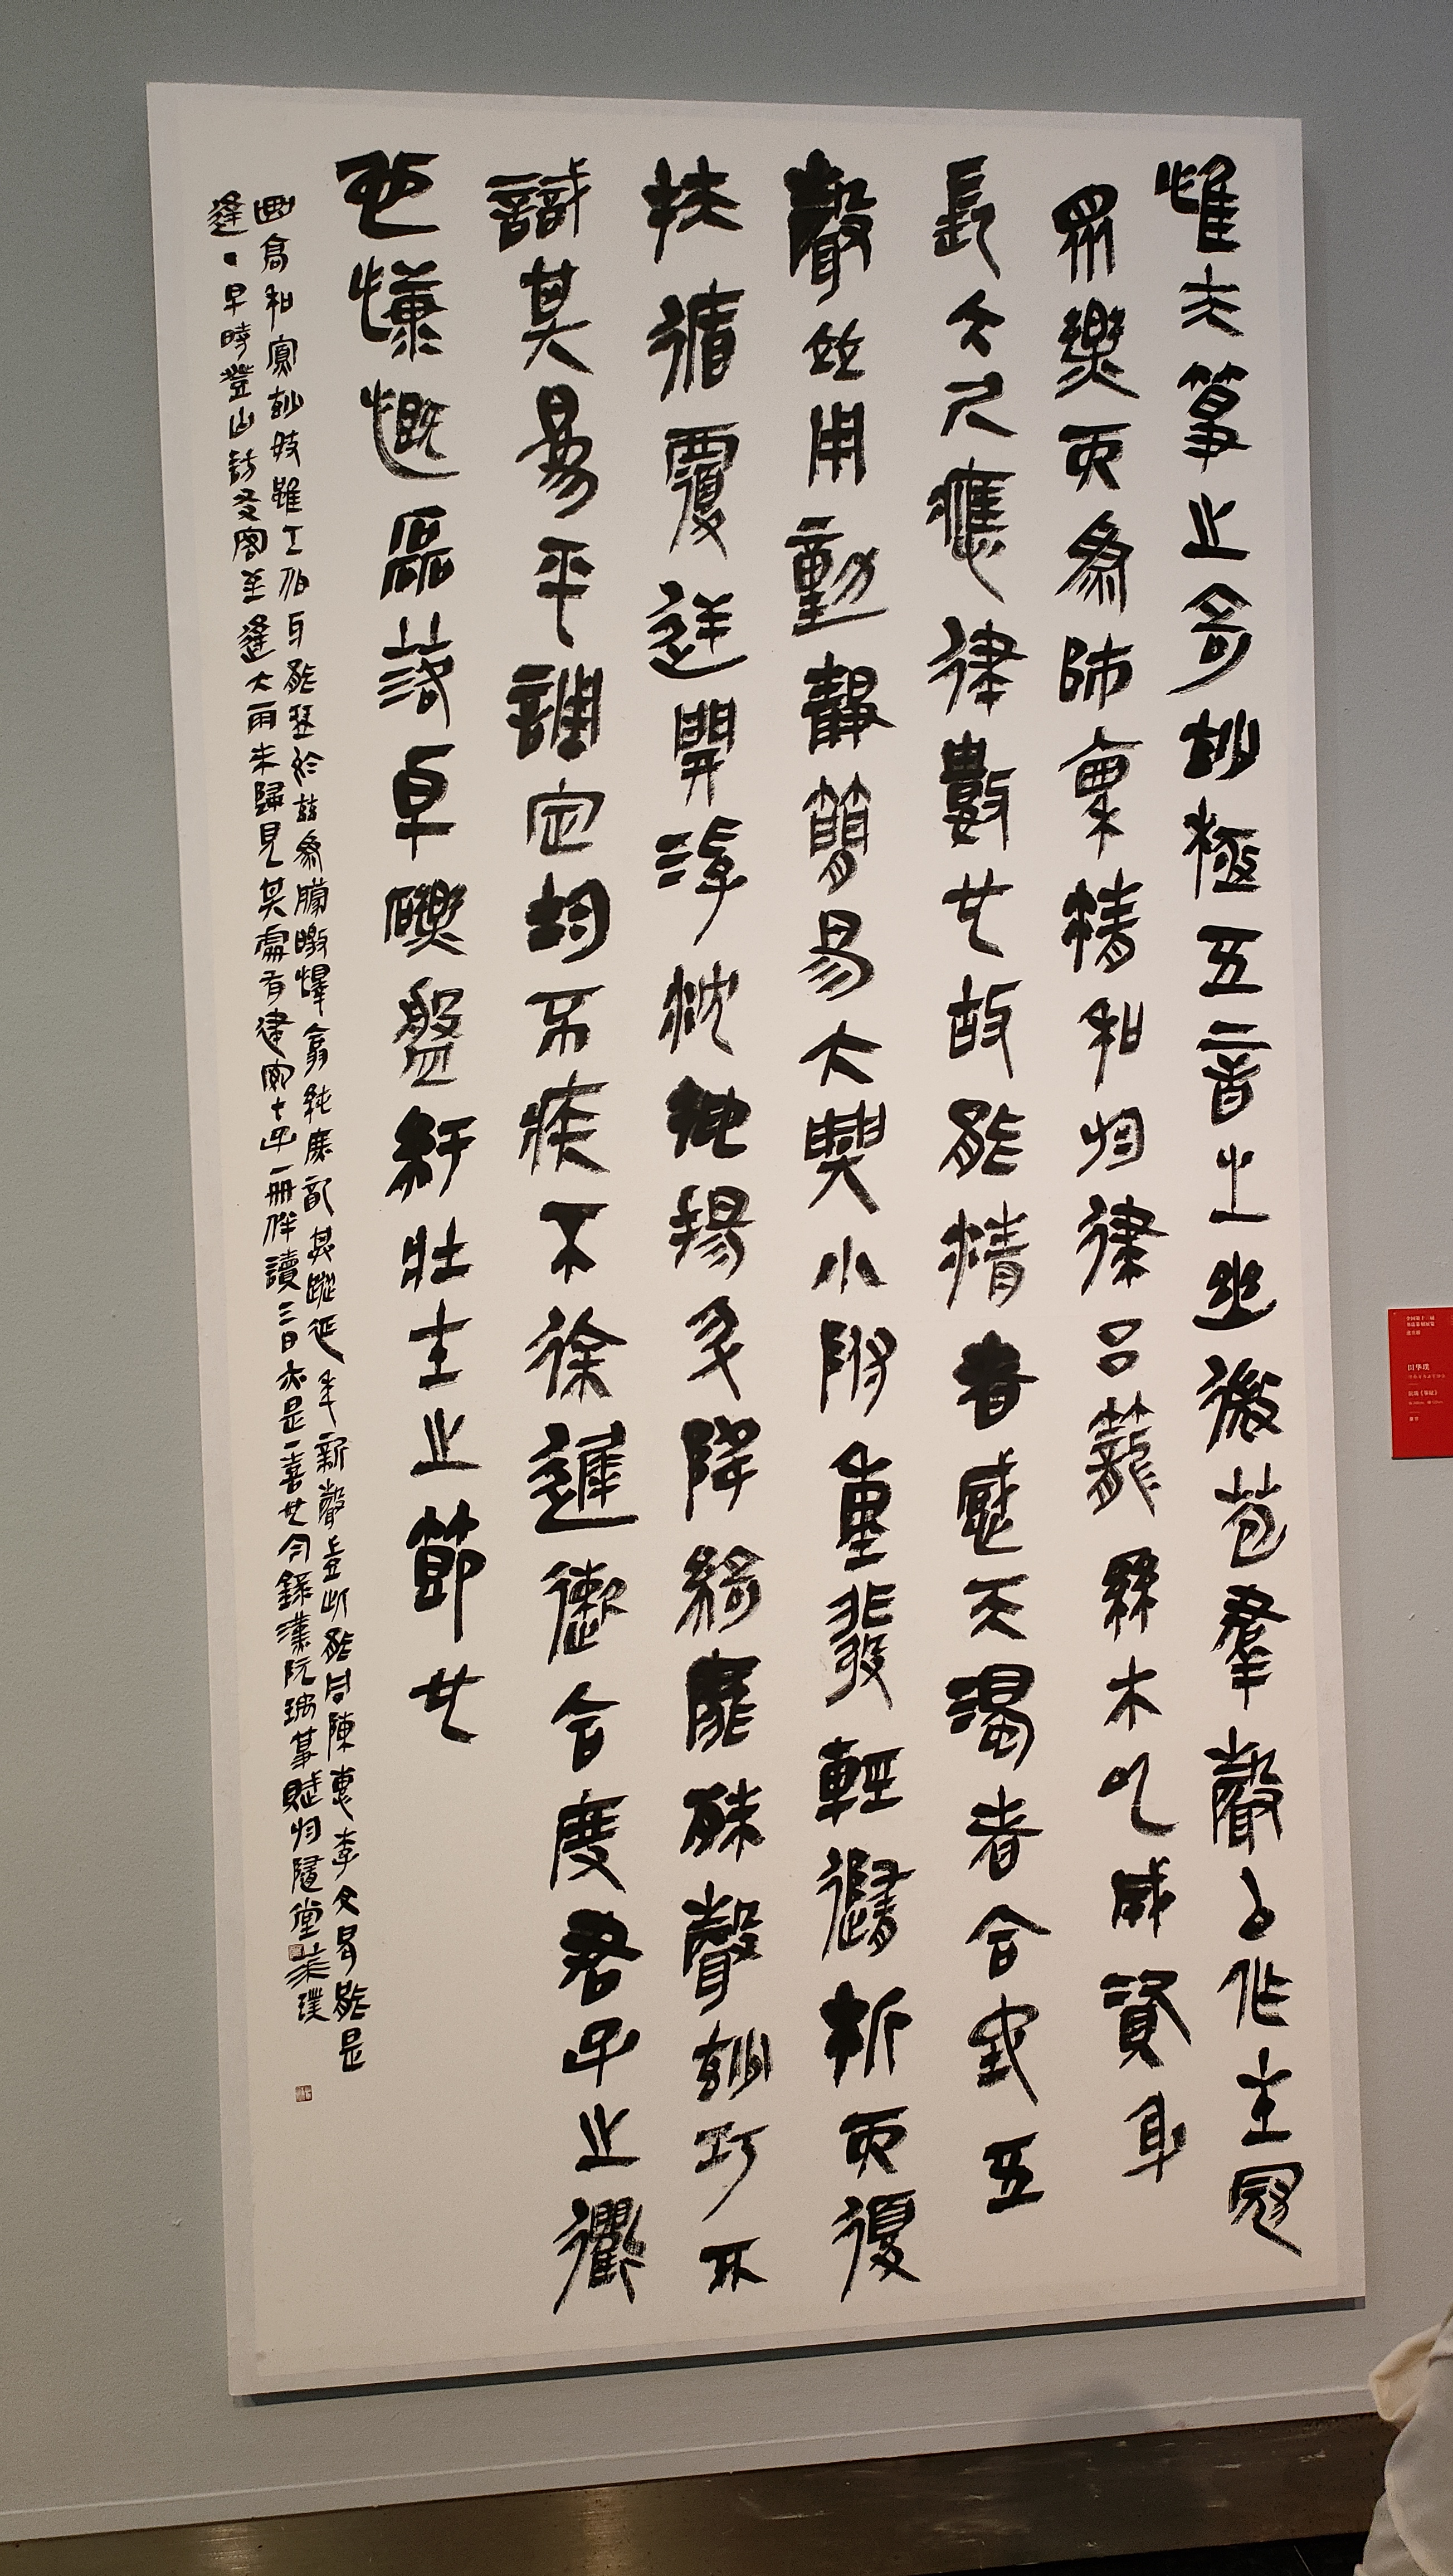 惟夫箏之奇妙極五音之幽微苞羣聲以作主冠
眾樂而為師稟精和於律呂籠絲木以成資身
長六尺應律數也故能精者感天濁者合地五
聲並用動靜簡易大興小附重發輕隨折而復
扶循覆逆開浮沈抑揚升降綺靡殊聲妙巧不
識其易平調定均不疾不徐遲速合度君子之衢
也慷慨磊落卓礫盤紆壯士之節也
曲高和寡妙妓雖工伯牙能琴於茲為朦皦懌翕純庶配其蹤延年新聲豈此能同陳惠李文曷能是
逢早時登山訪友閣至逢大雨未歸見其處有十子一冊伴讀三日亦是一喜也今錄漢阮瑀箏賦於隱堂華璞
田华璞